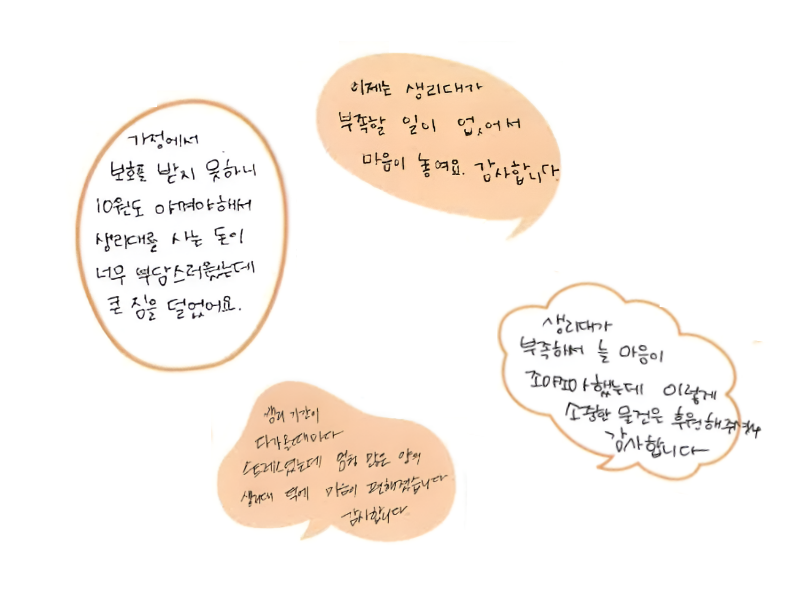 이제는 생리대가
부족할 일이 없어서
마음이 놓여요. 감사합니다
가정에서
보호를 받지 못하니
10원도 아껴야해서
생리대를 사는 돈이
너무 부담스러웠는데
큰 짐을 덜었어요.
생리대가
부족해서 늘 마음이
조마조마했는데 이렇게
소중한 물건은 후원해주셔서
감사합니다
생리 기간이
다가올때마다
스트레스였는데 엄청 많은 양의
생리대 덕에 마음이 편해졌습니다
감사합니다